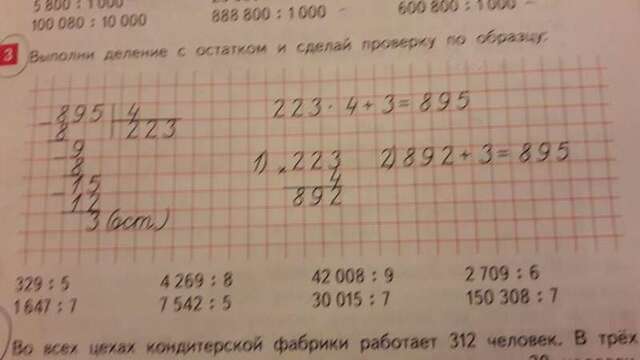 5 800 : 1 000
100 080 : 10 000
888 800 : 1 000
600 800 : 1 000
3 Выполни деление с остатком и сделай проверку по образцу:
895 | 4
8 223
9
8
15
12
3 (ост.)
223 · 4 + 3 = 895
1) × 223
4
892
2) 892 + 3 = 895
329 : 5 4 269 : 8 42 008 : 9 2 709 : 6
1 647 : 7 7 542 : 5 30 015 : 7 150 308 : 7
Во всех цехах кондитерской фабрики работает 312 человек. В трёх